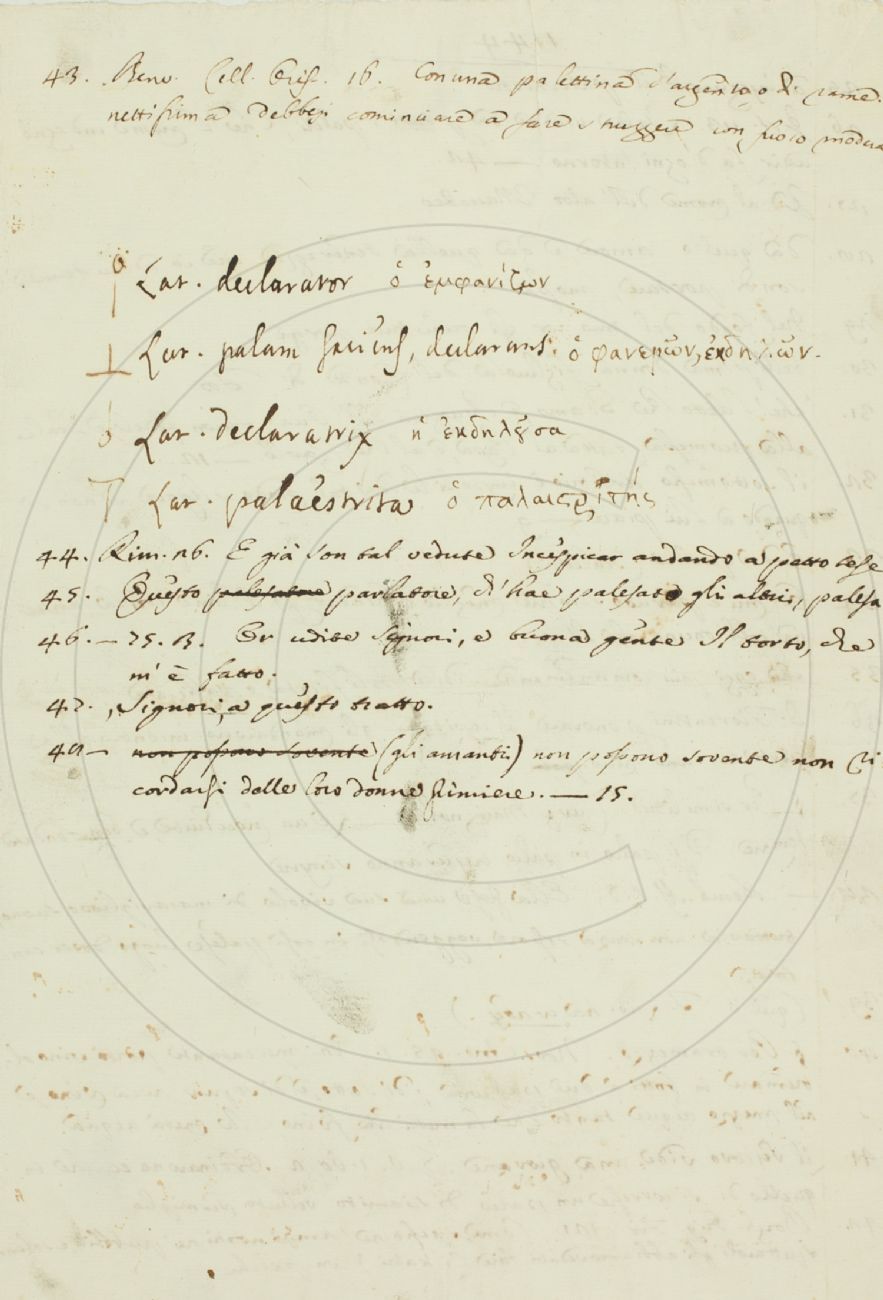 43. Benv. Cell. Oref. 16. Con una palettina d'argento o di rame
nettissima debbesi cominciare a fare struggere con fuoco modera
Lat. declarator ὁ ἐμφανίζων
Lat. palam faciens, declarans. ὁ φανερῶν, ἐκδηλῶν.
Lat. declaratrix ἡ ἐκδηλοῦσα
Lat. palaestrita ὁ παλαιστρίτης
44. Rim. 26. E già son tal vedute Incespicar andando a petto tese
45. Questo palesatore parlatore, ch'hae palesato gli altri, palesa
46. — 25. 13. Or udite Signori, e buona gente Il torto, che
m' è fatto.
47. Signori, a questo tratto.
non possono sovente (gli amanti) non possono sovente non ri
cordarsi delle loro donne primiere. — 15.